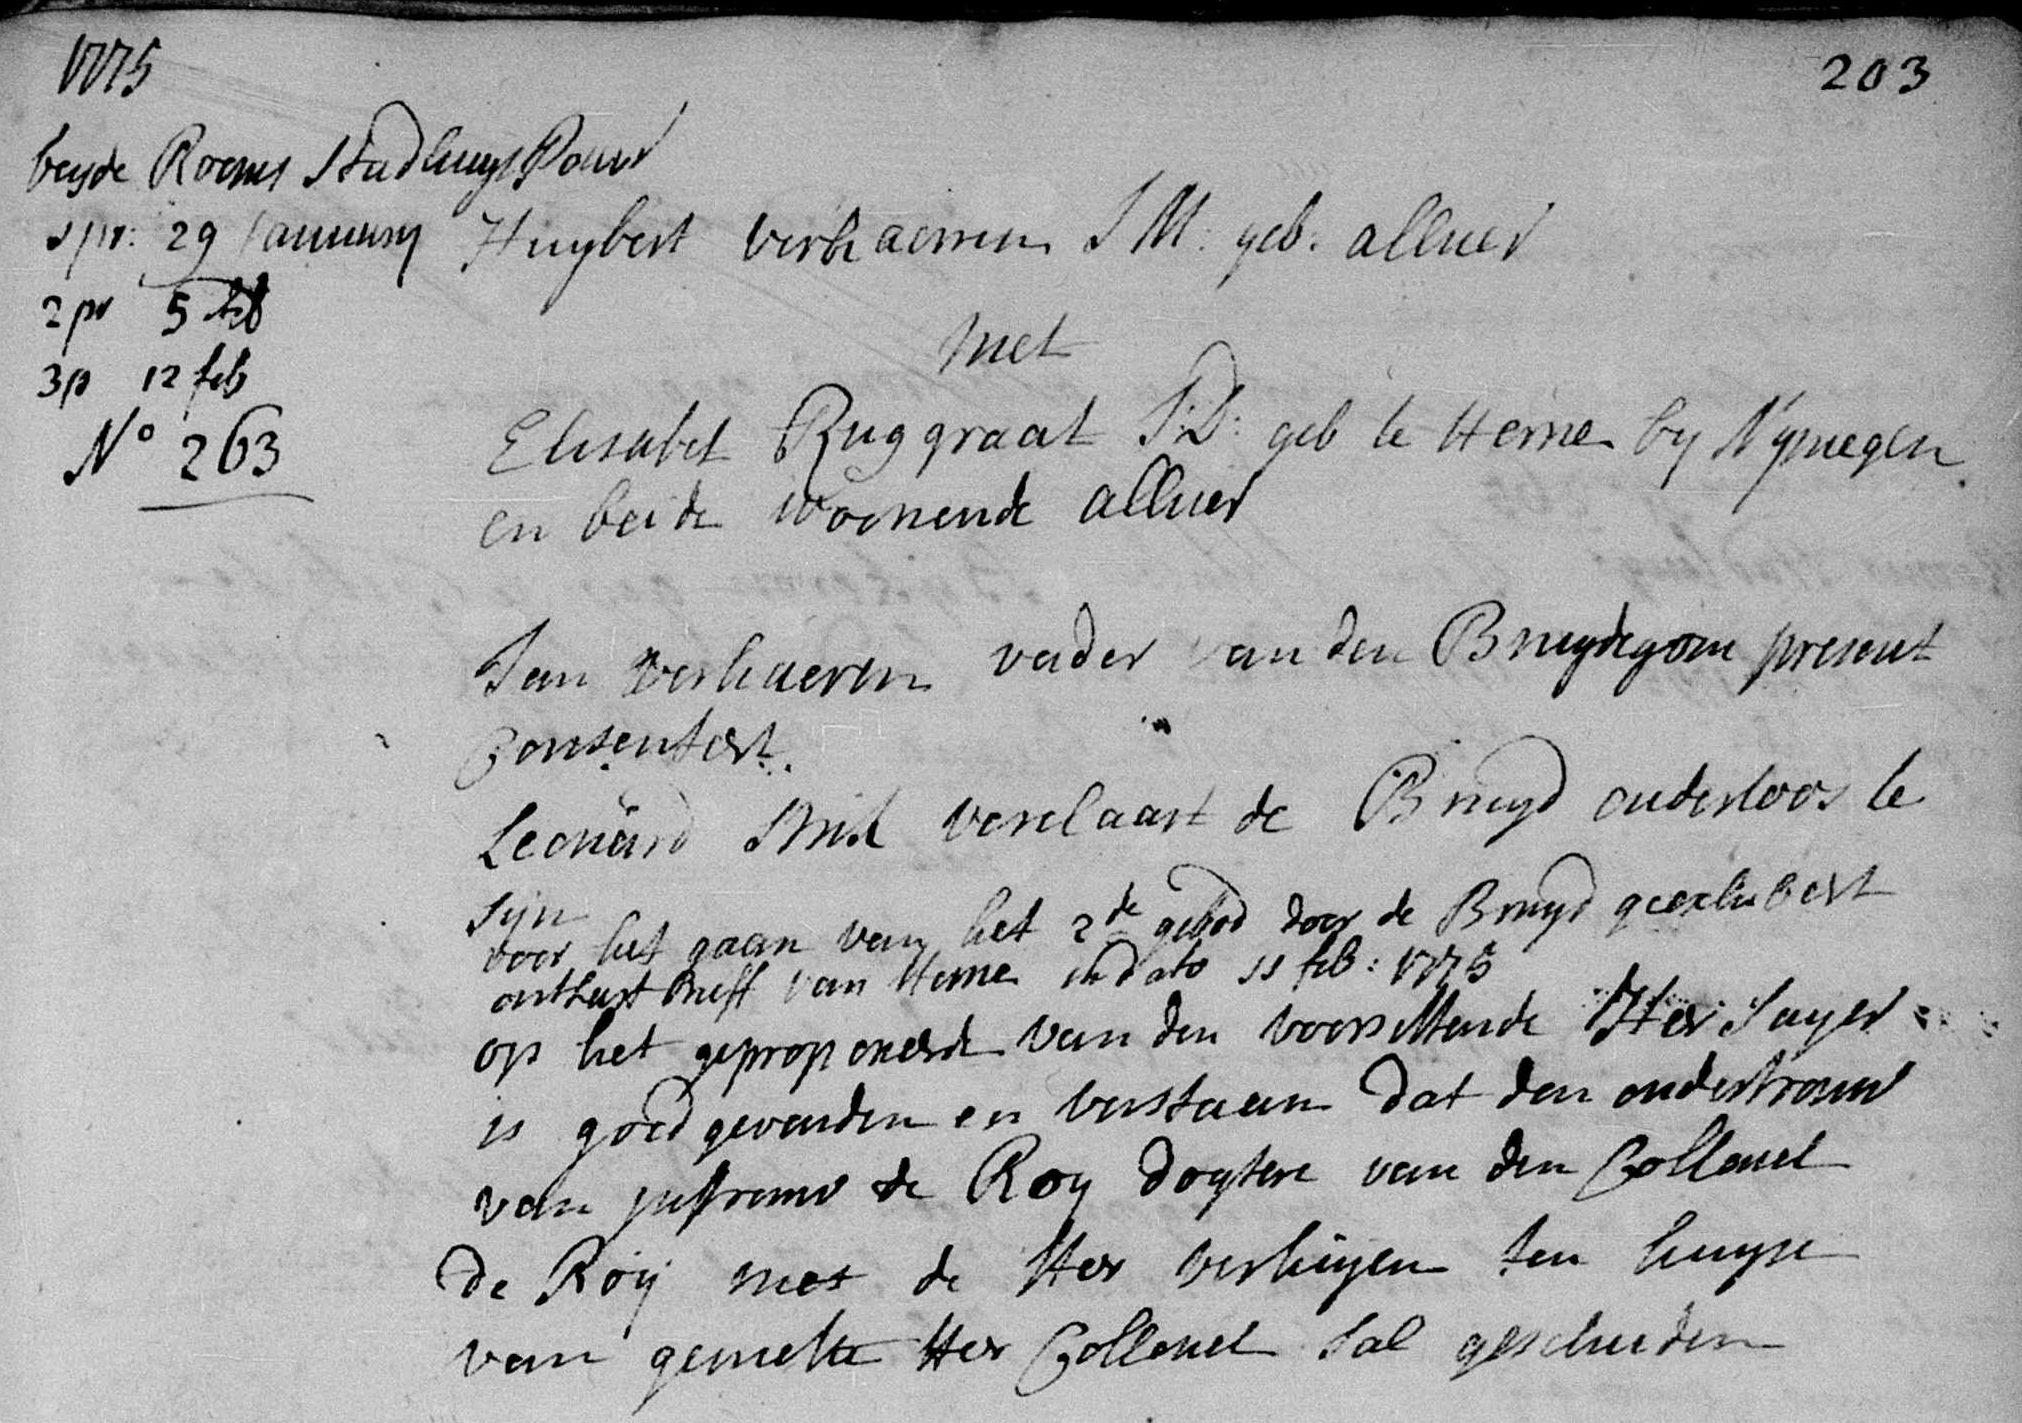 1775
203
beyde Rooms Stadhuys Pouver
1 pr: 29 January
2 pr 5 feb
3 p 12 feb
N° 263
Huybert Verhaeren J M: geb: alhier
met
Elisabet Ruggraat J:D: geb te Herne by Nymegen
en beide woonende alhier
Jan verhaeren vader van den Bruydegom present
Consenteert.
Leonard Smit verclaart de Bruyd ouderloos te
Syn
voor het gaan van het 2de gebod door de Bruyd geexhibeert
ontlast brieff van Herne in dato 11 feb: 1775
op het geproponeerde van den voorsittende Her Sayer
is goedgevonden en verstaen dat den ondertrouw
van juffrouw de Roy dogtere van den Collonel
de Roij met de Her verhuyen ten huyse
van gemelte Her Collonel sal geschieden